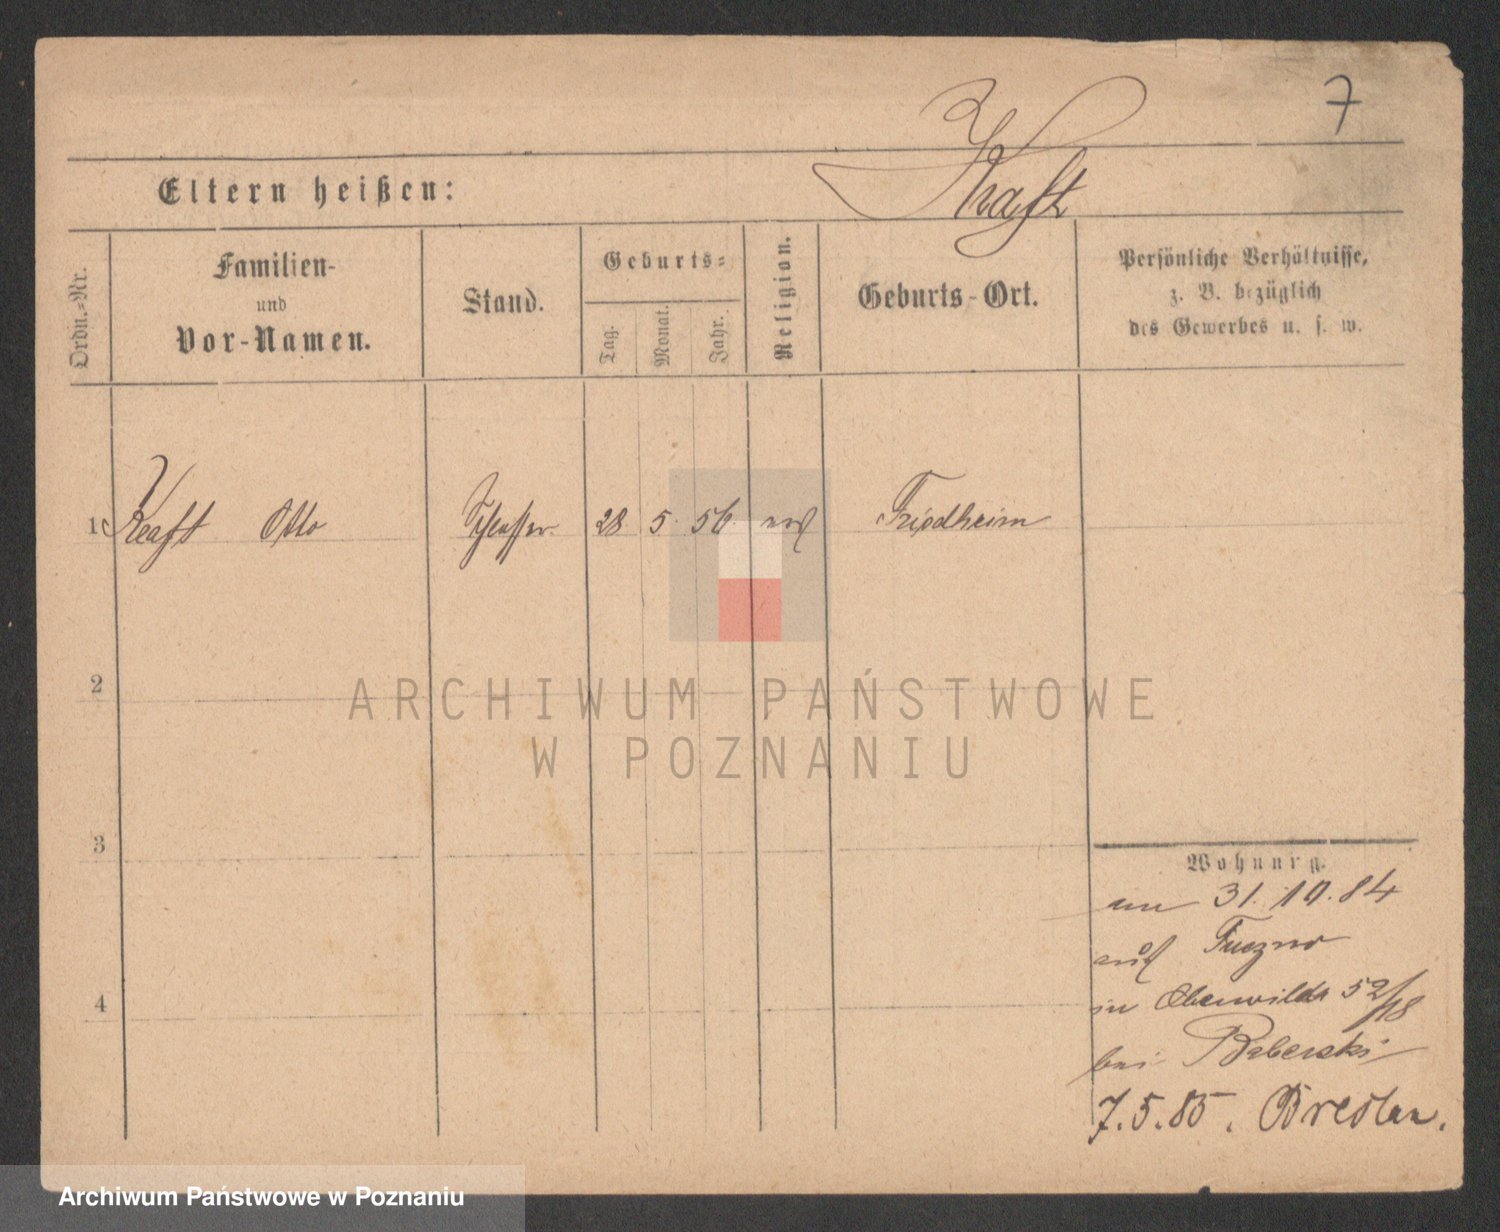 7
Kraft
Eltern heißen:
Ordn.-Nr.
Familien-
und
Vor-Namen.
Stand.
Geburts-
Tag.
Monat.
Jahr.
Religion.
Geburts-Ort.
Persönliche Verhältnisse,
z. B. bezüglich
des Gewerbes u. s. w.
1 Kraft Otto Schlosser 28 5. 56. Friedheim
2
ARCHIWUM PAŃSTWOWE
W POZNANIU
3
4
Wohnung.
am 31. 10. 84
auf
in Oberwilda 52/18
bei
7.5.85. Breslau.
Archiwum Państwowe w Poznaniu